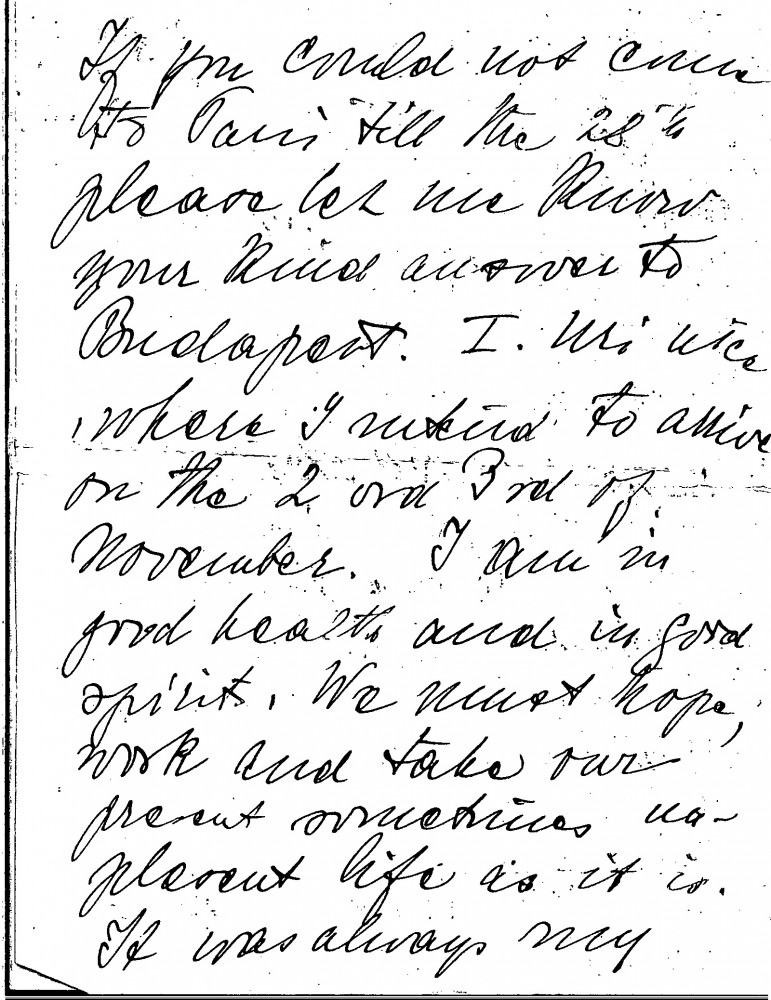 If you could not come
to Paris till the 28th
please let me know
your kind answer to
Budapest. I. Uri utca
, where I intend to arrive
on the 2 ord 3rd of
November. I am in
good health and in good
spirit. We must hope,
work and take our
present sometimes un-
plesent life as it is.
It was always my